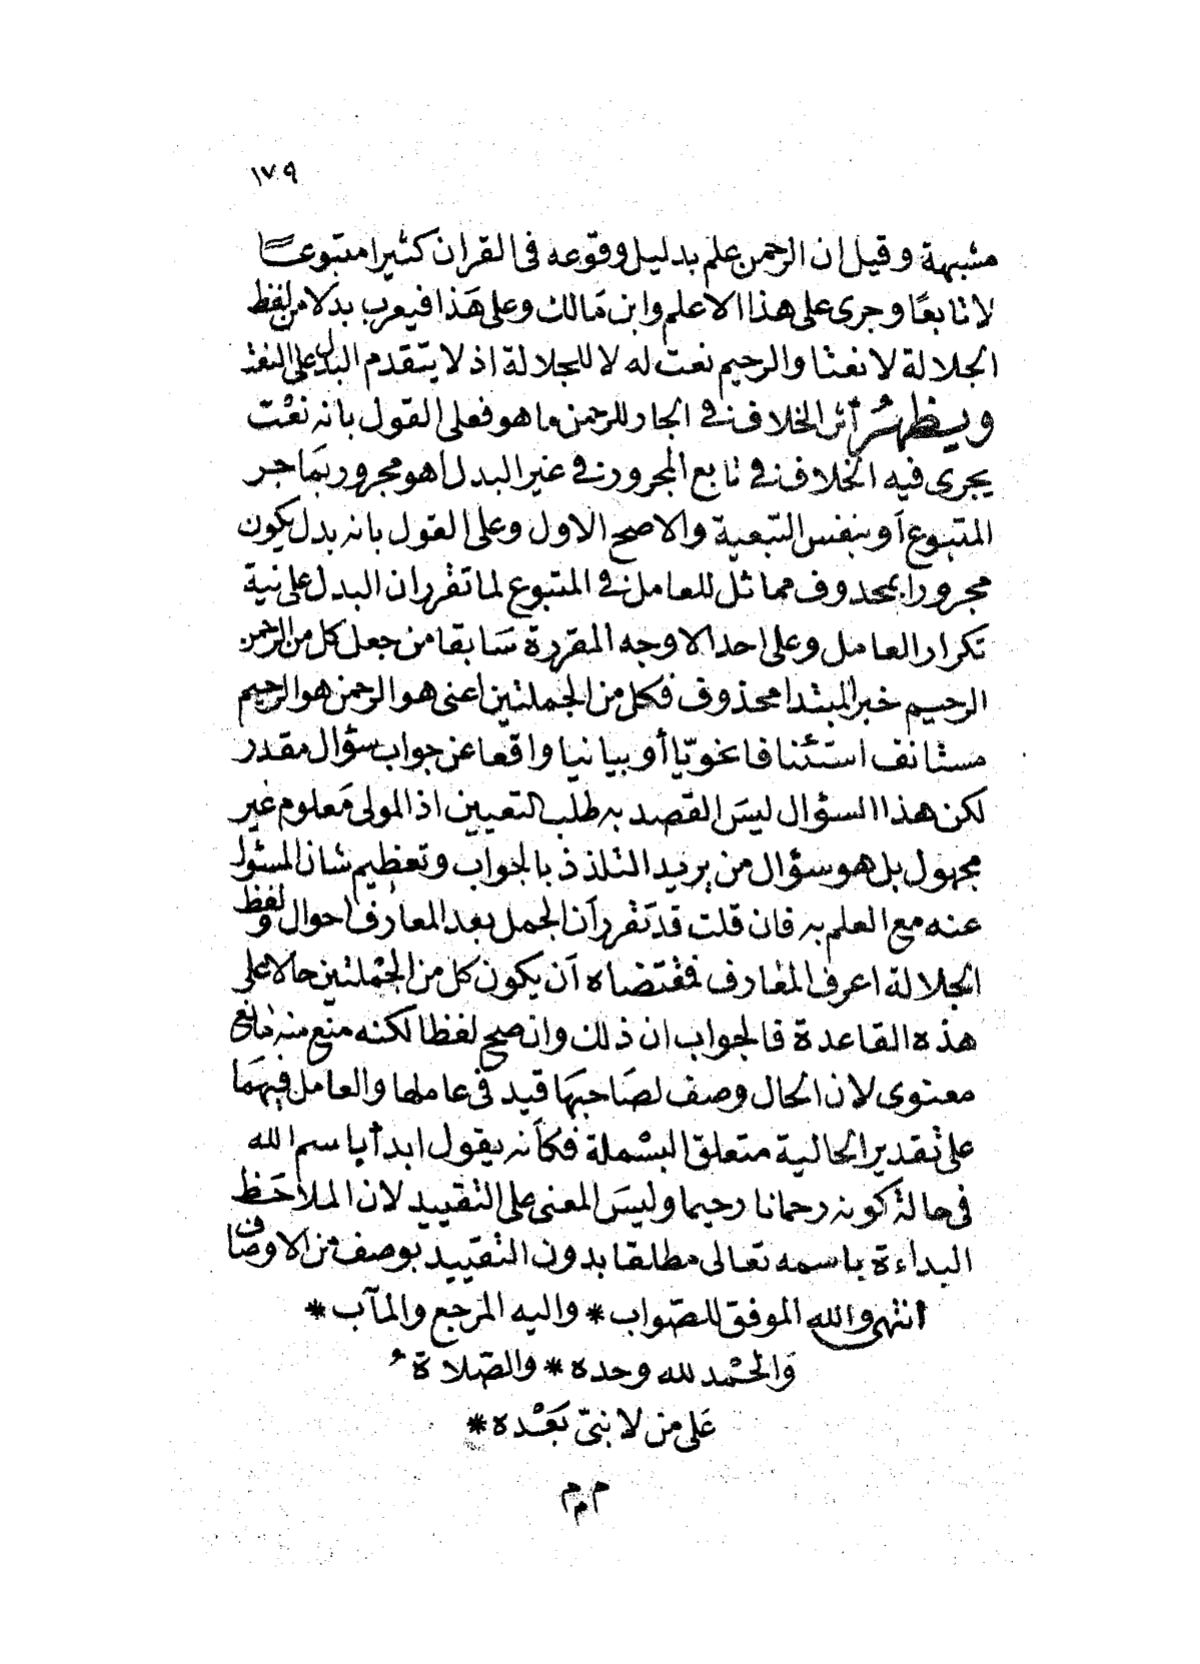 ١٧٩
مشبهة وقيل ان الرحمن علم بدليل وقوعه فى القران كثيرا متبوعًا
لا تابعًا وجرى على هذا الاعلم وابن مَالك وعلى هَذا فيعرب بدَلا من لفظ
الجلالة لا نعتا والرحيم نعت له لا للجلالة اذ لا يتقدم البدل على النعت
ويظهرُ أثر الخلاف فى الجار للرحمن ما هو فعلى القول بانه نعْت
يجرى فيه الخلاف فى تابع المجرور فى غير البدل اهو مجرور بمَا جر
المتبوع أو بنفس التبعية والاصح الاول وعلى القول بانه بدل يكون
مجرورا بمحذوف مماثل للعامل فى المتبوع لما تقرر ان البدل على نية
تكرار العامل وعلى احد الاوجه المقررة سَابقا من جعل كل من الرحمن
الرحيم خبر المبتدا محذوف فكل من الجملتين اعنى هو الرحمن هو الرحيم
مستانف استئنافا نحويّا أو بيانيا واقعا عن جواب سؤال مقدر
لكن هذا السؤال ليسَ القصد به طلب التعيين اذ المولى مَعلوم غير
مجهول بل هو سؤال من يريد التلذذ بالجواب وتعظيم شان المسئول
عنه مع العلم به فان قلت قد تَقرر أن الجمل بعد المعارف احوال ولفظ
الجلالة اعرف المعَارف فمقتضاه أن يكون كل من الجمْلتين حالا على
هذه القاعدة فالجواب ان ذلك وان صح لفظا لكنه منع منه مَانع
معنوى لان الحال وصف لصَاحبهَا قيد فى عاملها والعامل فيهمَا
على تقدير الحالية متعلق البسْملة فكأنه يقول ابدأ باسم الله
فى حالة كونه رحمانا رحيما وليسَ المعنى على التقييد لان الملاحَظ
البداءة باسمه تعالى مطلقا بدون التقييد بوصف من الاوصاف
انتهى والله الموفق للصّواب * واليه المرجع والمآب *
وَالحمْد لله وحده * والصّلاةُ
عَلى من لا نبىّ بَعْده *
م م م